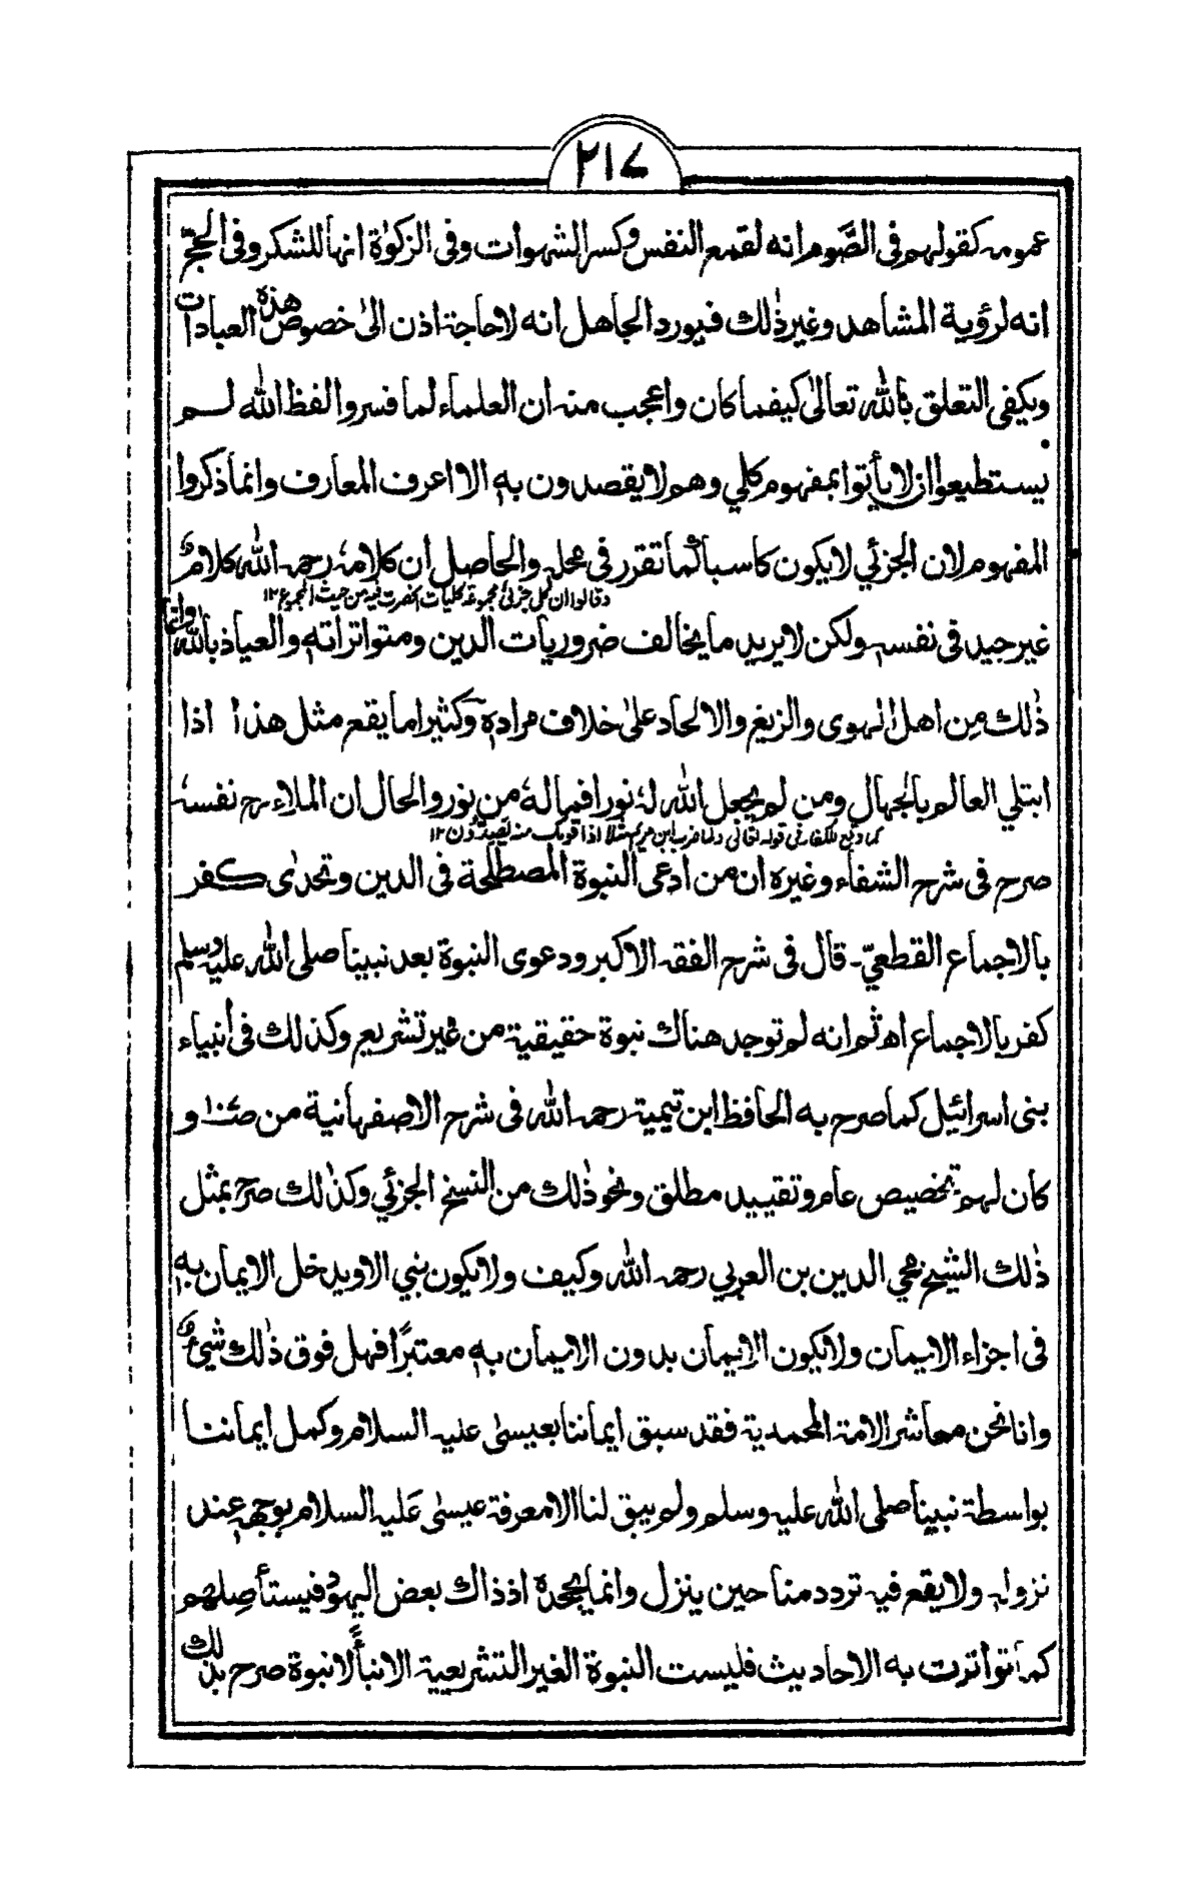 ٢١٧
عمومه كقولهم فى الصَّوم انه لقمع النفس وكسر الشهوات وفى الزكوٰة انها للشكر وفى الحجّ
انه لرؤية المشاهد وغير ذٰلك فيورد الجاهل انه لاحاجة اذن الىٰ خصوص هذه العبادات
ويكفى التعلق باللّٰه تعالىٰ كيفما كان واعجب منه ان العلماء لما فسروا لفظ اللّٰه لم
يستطيعوا ان لا يأتوا بمفهوم كلي وهم لا يقصدون به الا اعرف المعارف وانما ذكروا
المفهوم لان الجزئي لا يكون كاسبا كما تقرر فى محله والحاصل ان كلامه رحمه اللّٰه كلام
وقالوا ان كل جزئى مجموعة كليات انحصرت فيه من حيث المجموع ١٢
غير جيد فى نفسه ولكن لا يريد ما يخالف ضروريات الدين ومتواتراته والعياذ باللّٰه وانما
ذٰلك من اهل الهوى والزيغ والالحاد علىٰ خلاف مراده وكثيرا ما يقع مثل هذا اذا
ابتلي العالم بالجهال ومن لم يجعل اللّٰه له نورا فما له من نور والحال ان الملا عـ نفسه
كما وقع للكفار فى قوله تعالى ولما ضرب ابن مريم مثلا اذا قومك منه يصدون ١٢
صرح فى شرح الشفاء وغيره ان من ادعى النبوة المصطلحة فى الدين وتحدىٰ كفر
بالاجماع القطعيّ۔ قال فى شرح الفقه الاكبر ودعوى النبوة بعد نبينا صلى اللّٰه عليه وسلم
كفر بالاجماع اھ ثم انه لم توجد هناك نبوة حقيقية من غير تشريع وكذلك فى أنبياء
بنى اسرائيل كما صرح به الحافظ ابن تيمية رحمه اللّٰه فى شرح الاصفهانية من و
كان لهم تخصيص عام وتقييد مطلق ونحو ذٰلك من النسخ الجزئي وكذٰلك صرح بمثل
ذٰلك الشيخ محي الدين بن العربي رحمه اللّٰه وكيف ولا يكون نبي الا ويدخل الايمان به
فى اجزاء الايمان ولا يكون الايمان بدون الايمان به معتبرًا فهل فوق ذٰلك شيئ
وانا نحن معاشر الامة المحمدية فقد سبق ايماننا بعيسىٰ عليه السلام وكمل ايماننا
بواسطة نبينا صلى اللّٰه عليه وسلم ولم يبق لنا الا معرفة عيسىٰ عَليه السلام بوجهه عند
نزوله ولا يقع فيه تردد منا حين ينزل وانما يجحده اذ ذاك بعض اليهود فيستأصلهم
كما تواترت به الاحاديث فليست النبوة الغير التشريعية الا نبأً لا نبوة صرح بذلك